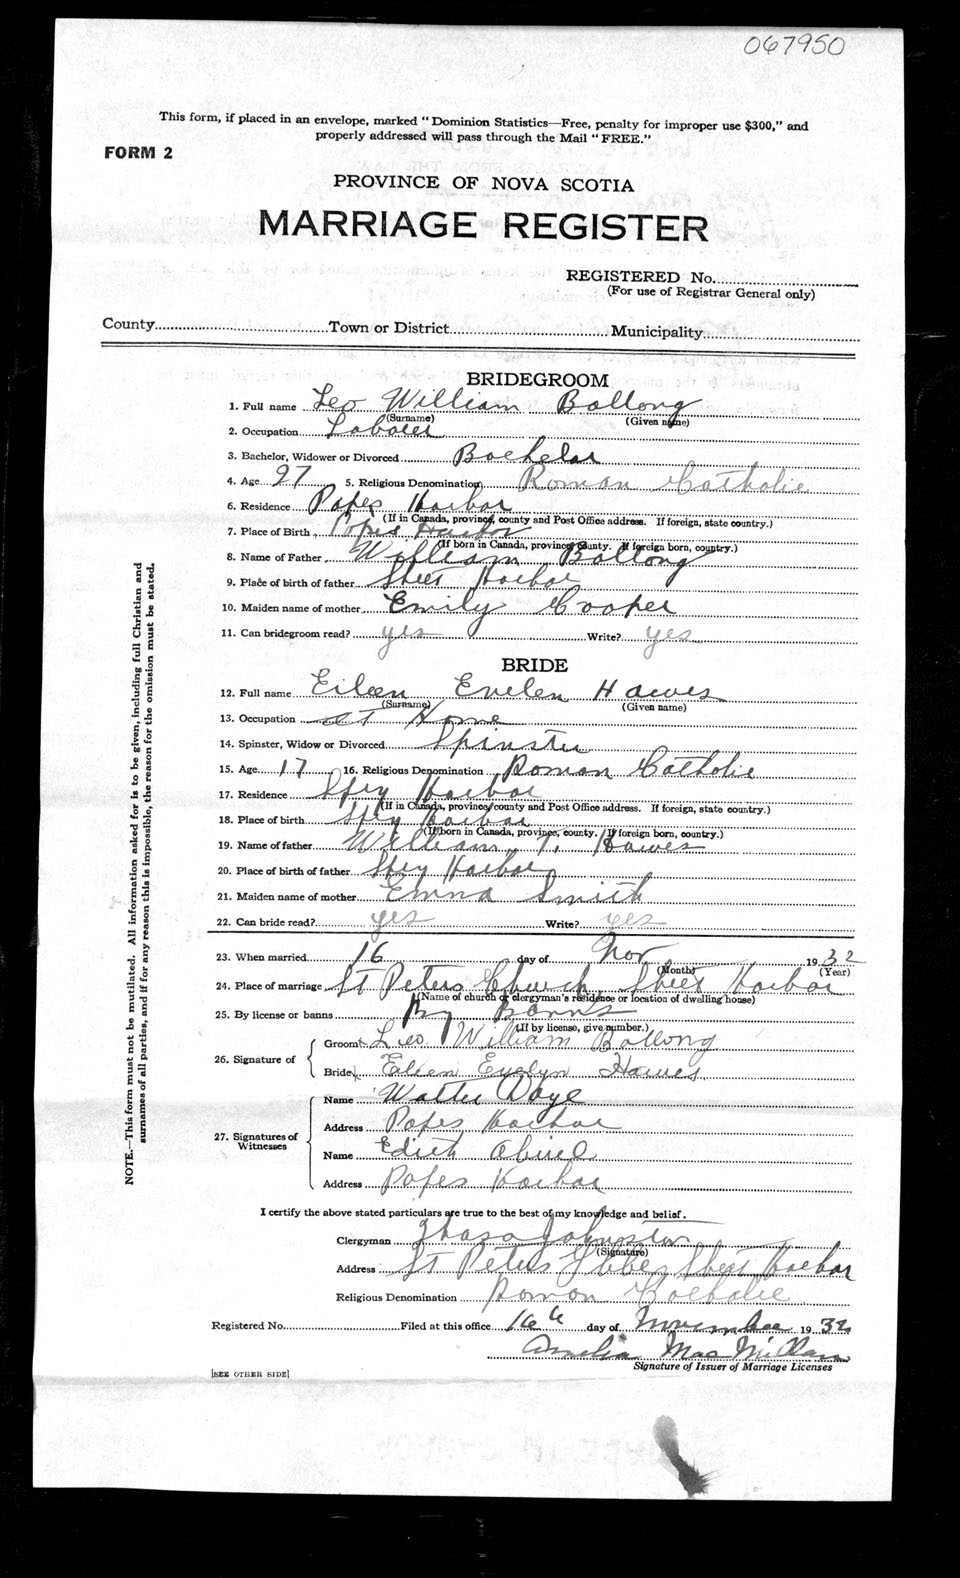 067950
This form, if placed in an envelope, marked "Dominion Statistics—Free, penalty for improper use $300," and
properly addressed will pass through the Mail "FREE."
FORM 2
PROVINCE OF NOVA SCOTIA
MARRIAGE REGISTER
REGISTERED No.
(For use of Registrar General only)
County Town or District Municipality
BRIDEGROOM
1. Full name Leo William Bollong
(Surname) (Given name)
2. Occupation Laborer
3. Bachelor, Widower or Divorced Bachelor
4. Age 27 5. Religious Denomination Roman Catholic
6. Residence Popes Harbor
(If in Canada, province, county and Post Office address. If foreign, state country.)
7. Place of Birth Popes Harbor
(If born in Canada, province, county. If foreign born, country.)
8. Name of Father William Bollong
9. Place of birth of father Sheet Harbor
10. Maiden name of mother Emily Cooper
11. Can bridegroom read? yes Write? yes
BRIDE
12. Full name Eileen Evelen Hawes
(Surname) (Given name)
13. Occupation at Home
14. Spinster, Widow or Divorced Spinster
15. Age 17 16. Religious Denomination Roman Catholic
17. Residence Spry Harbor
(If in Canada, province/county and Post Office address. If foreign, state country.)
18. Place of birth Spry Harbor
(If born in Canada, province, county. If foreign born, country.)
19. Name of father William T. Hawes
20. Place of birth of father Spry Harbor
21. Maiden name of mother Emma Smith
22. Can bride read? yes Write? yes
23. When married 16 day of Nov 1932
(Month) (Year)
24. Place of marriage St Peters Church Sheet Harbor
(Name of church or clergyman's residence or location of dwelling house)
25. By license or banns By Banns
(If by license, give number.)
26. Signature of
Groom Leo William Bollong
Bride Eileen Evelyn Hawes
27. Signatures of
Witnesses
Name Walter Doye
Address Popes Harbor
Name Edith
Address Popes Harbor
I certify the above stated particulars are true to the best of my knowledge and belief.
Clergyman Johnston
(Signature)
Address St Peters Glebe Sheet Harbor
Religious Denomination Roman Catholic
Registered No. Filed at this office 16th day of November 1932
Amelia Mac
Signature of Issuer of Marriage Licenses
[SEE OTHER SIDE]
NOTE.—This form must not be mutilated. All information asked for is to be given, including full Christian and
surnames of all parties, and if for any reason this is impossible, the reason for the omission must be stated.